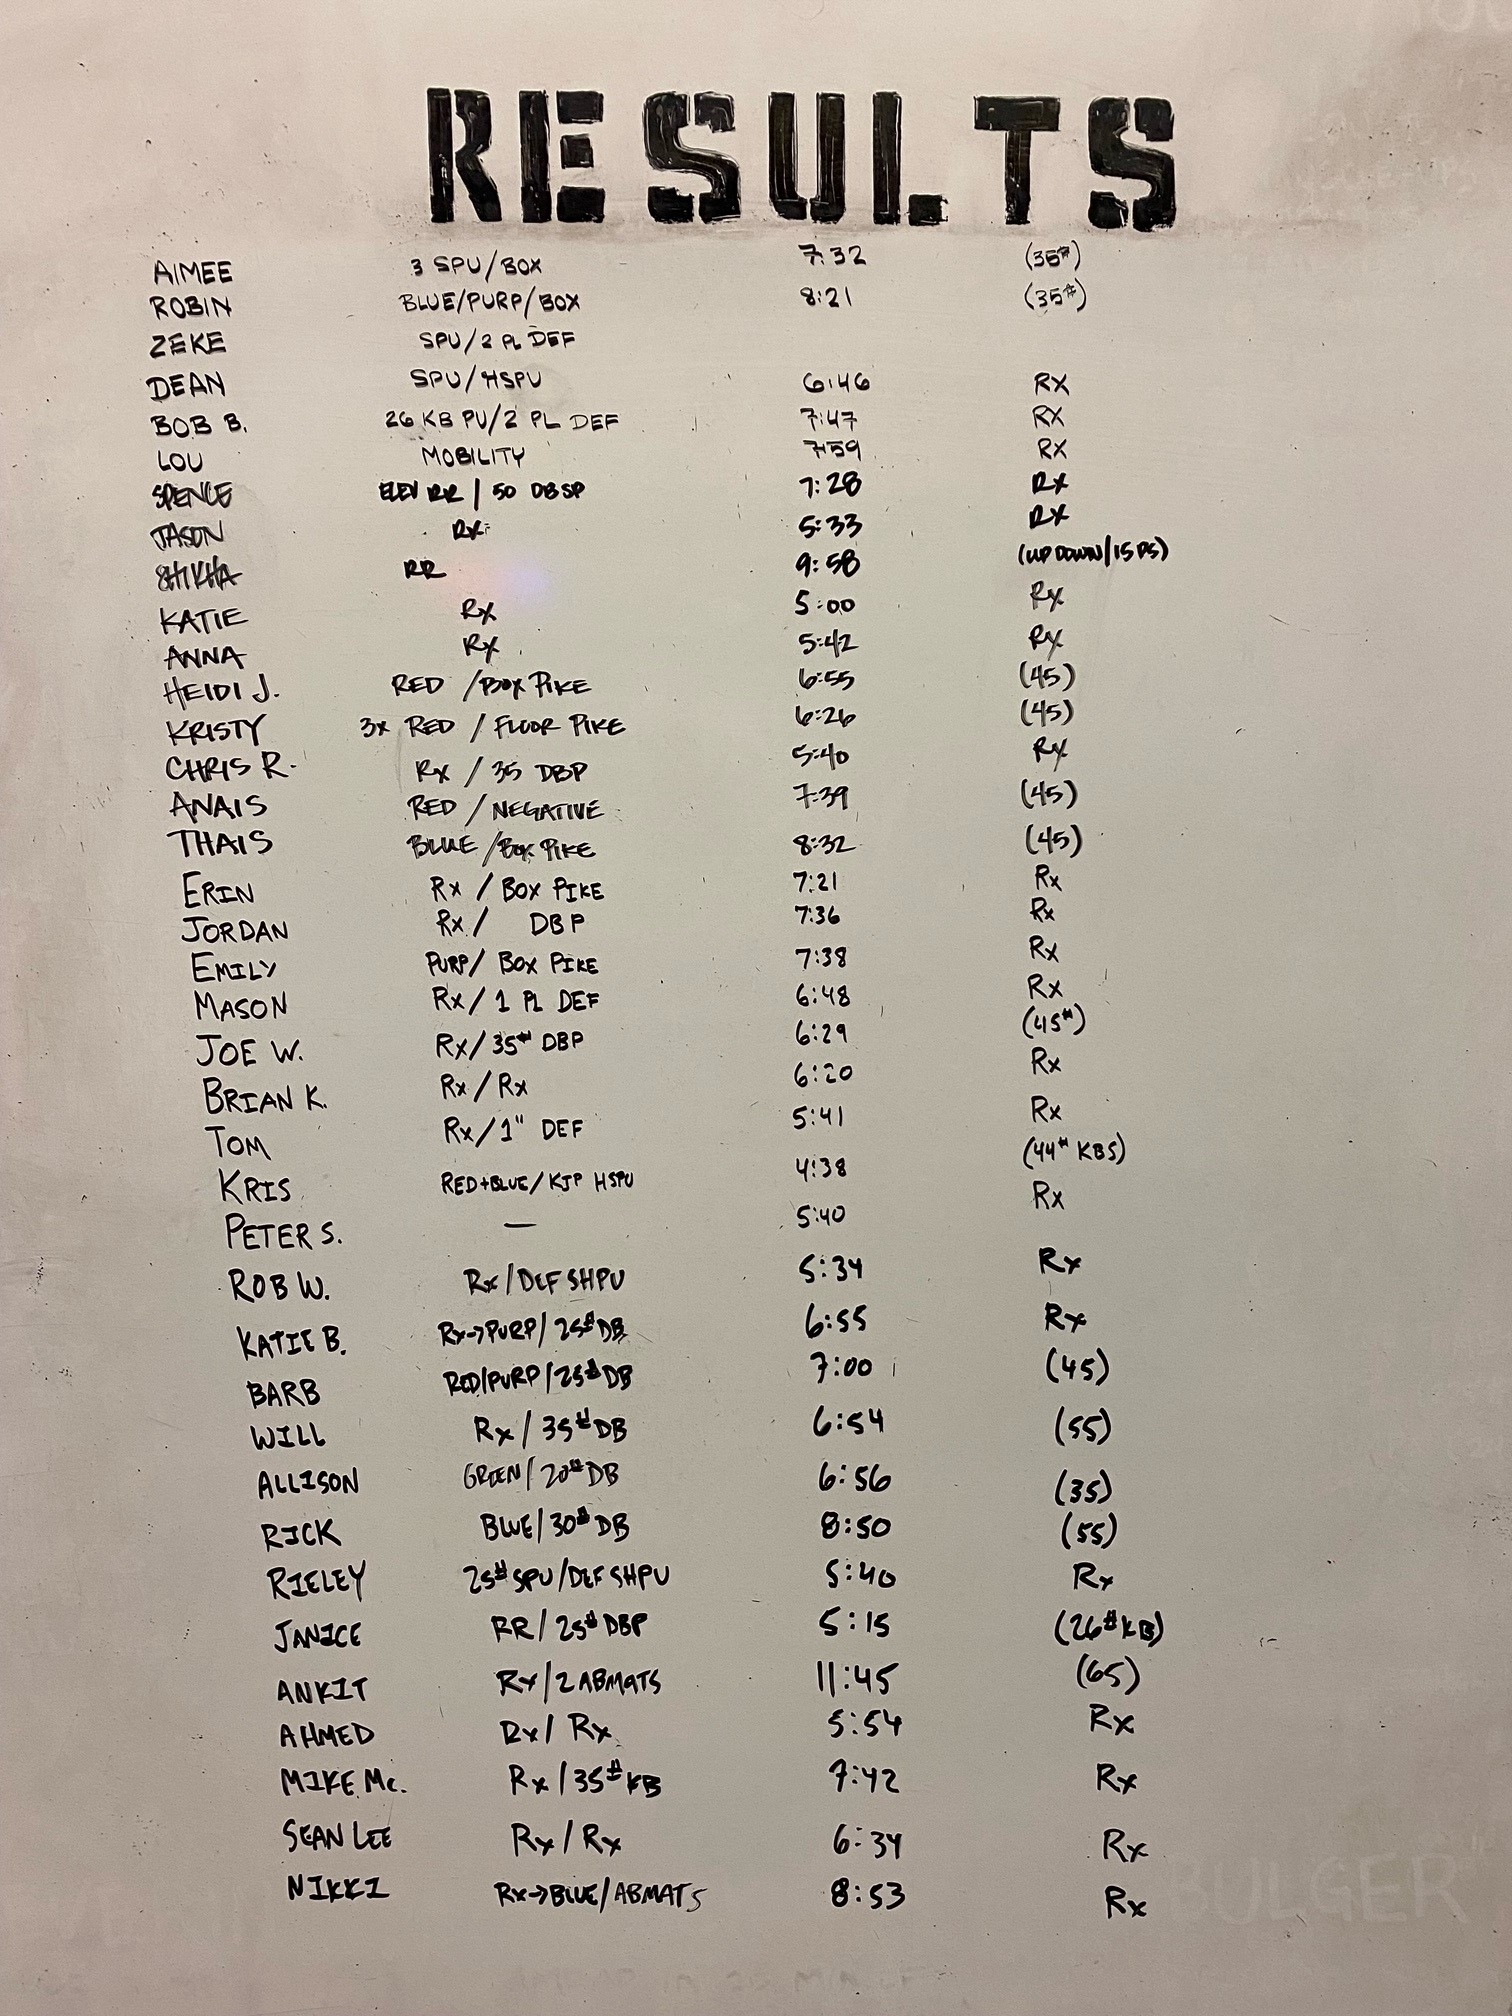 RESULTS
AIMEE 3 SPU/BOX 7:32 (35#)
ROBIN BLUE/PURP/BOX 8:21 (35#)
ZEKE SPU/2 PL DEF
DEAN SPU/HSPU 6:46 RX
BOB B. 26 KB PU/2 PL DEF 7:47 RX
LOU MOBILITY 7:59 RX
SPENCE ELEV RR / 50 DBSP 7:28 RX
JASON RX 5:33 RX
SHIKHA RR 9:58 (UP DOWN/15 PS)
KATIE RX 5:00 RX
ANNA RX 5:42 RX
HEIDI J. RED / BOX PIKE 6:55 (45)
KRISTY 3x RED / FLOOR PIKE 6:26 (45)
CHRIS R. Rx / 35 DBP 5:40 RX
ANAIS RED / NEGATIVE 7:39 (45)
THAIS BLUE / BOX PIKE 8:32 (45)
ERIN Rx / BOX PIKE 7:21 Rx
JORDAN Rx / DBP 7:36 Rx
EMILY PURP/ BOX PIKE 7:38 Rx
MASON Rx/ 1 PL DEF 6:48 Rx
JOE W. Rx/35# DBP 6:29 (45#)
BRIAN K. Rx/Rx 6:20 Rx
TOM Rx/1" DEF 5:41 Rx
KRIS RED+BLUE/KIP HSPU 4:38 (44# KBS)
PETER S. — 5:40 Rx
ROB W. Rx/DEF SHPU 5:34 Rx
KATIE B. Rx→PURP/25# DB 6:55 Rx
BARB RED/PURP/25# DB 7:00 (45)
WILL Rx/35# DB 6:54 (55)
ALLISON GREEN/20# DB 6:56 (35)
RICK BLUE/30# DB 8:50 (55)
RIELEY 25# SPU/DEF SHPU 5:40 Rx
JANICE RR/25# DBP 5:15 (26# KB)
ANKIT Rx/2 ABMATS 11:45 (65)
AHMED Rx/Rx 5:54 Rx
MIKE Mc. Rx/35# KB 7:42 Rx
SEAN LEE Rx/Rx 6:34 Rx
NIKKI Rx→BLUE/ABMATS 8:53 Rx
BULGER